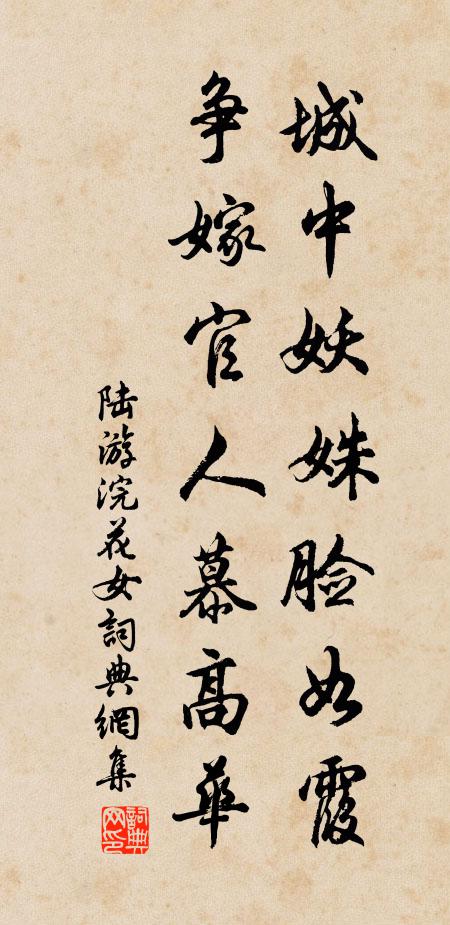 城中妖姝脸如霞
争嫁官人慕高华
陆游浣花女词典網集
詞典网印